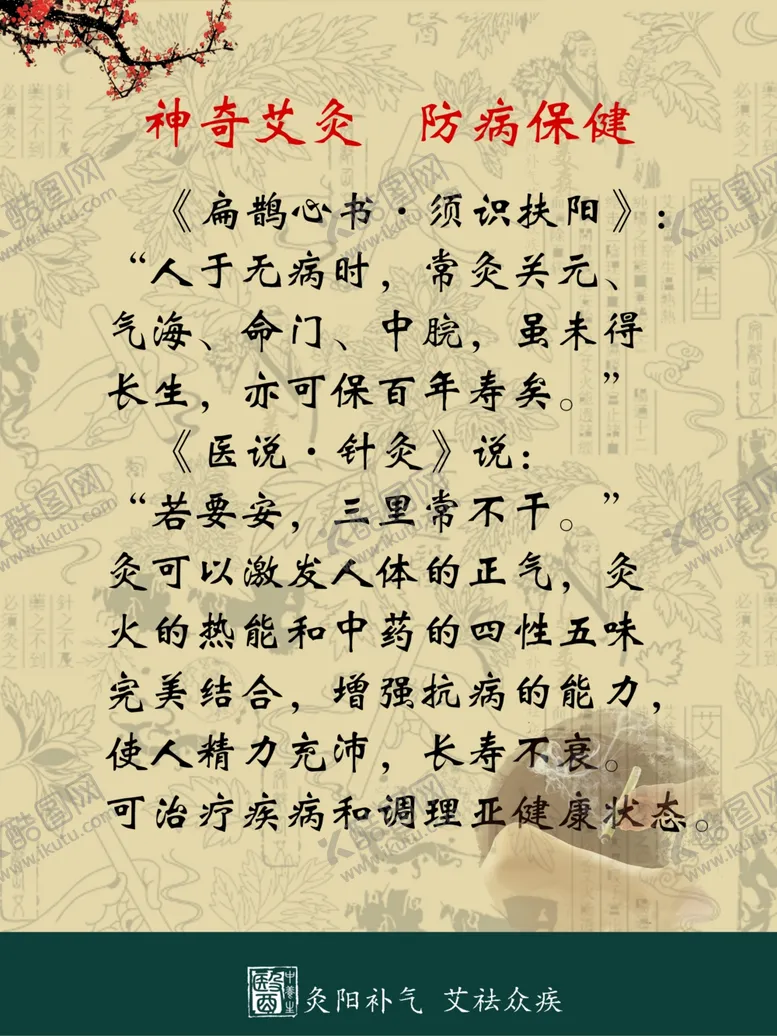 神奇艾灸 防病保健
《扁鹊心书·须识扶阳》:
“人于无病时，常灸关元、
气海、命门、中脘，虽未得
长生，亦可保百年寿矣。”
《医说·针灸》说:
“若要安，三里常不干。”
灸可以激发人体的正气，灸
火的热能和中药的四性五味
完美结合，增强抗病的能力，
使人精力充沛，长寿不衰。
可治疗疾病和调理亚健康状态。
醫 中养生
灸阳补气 艾祛众疾
酷图网
www.ikutu.com
针之不到
药之不到
必须灸之